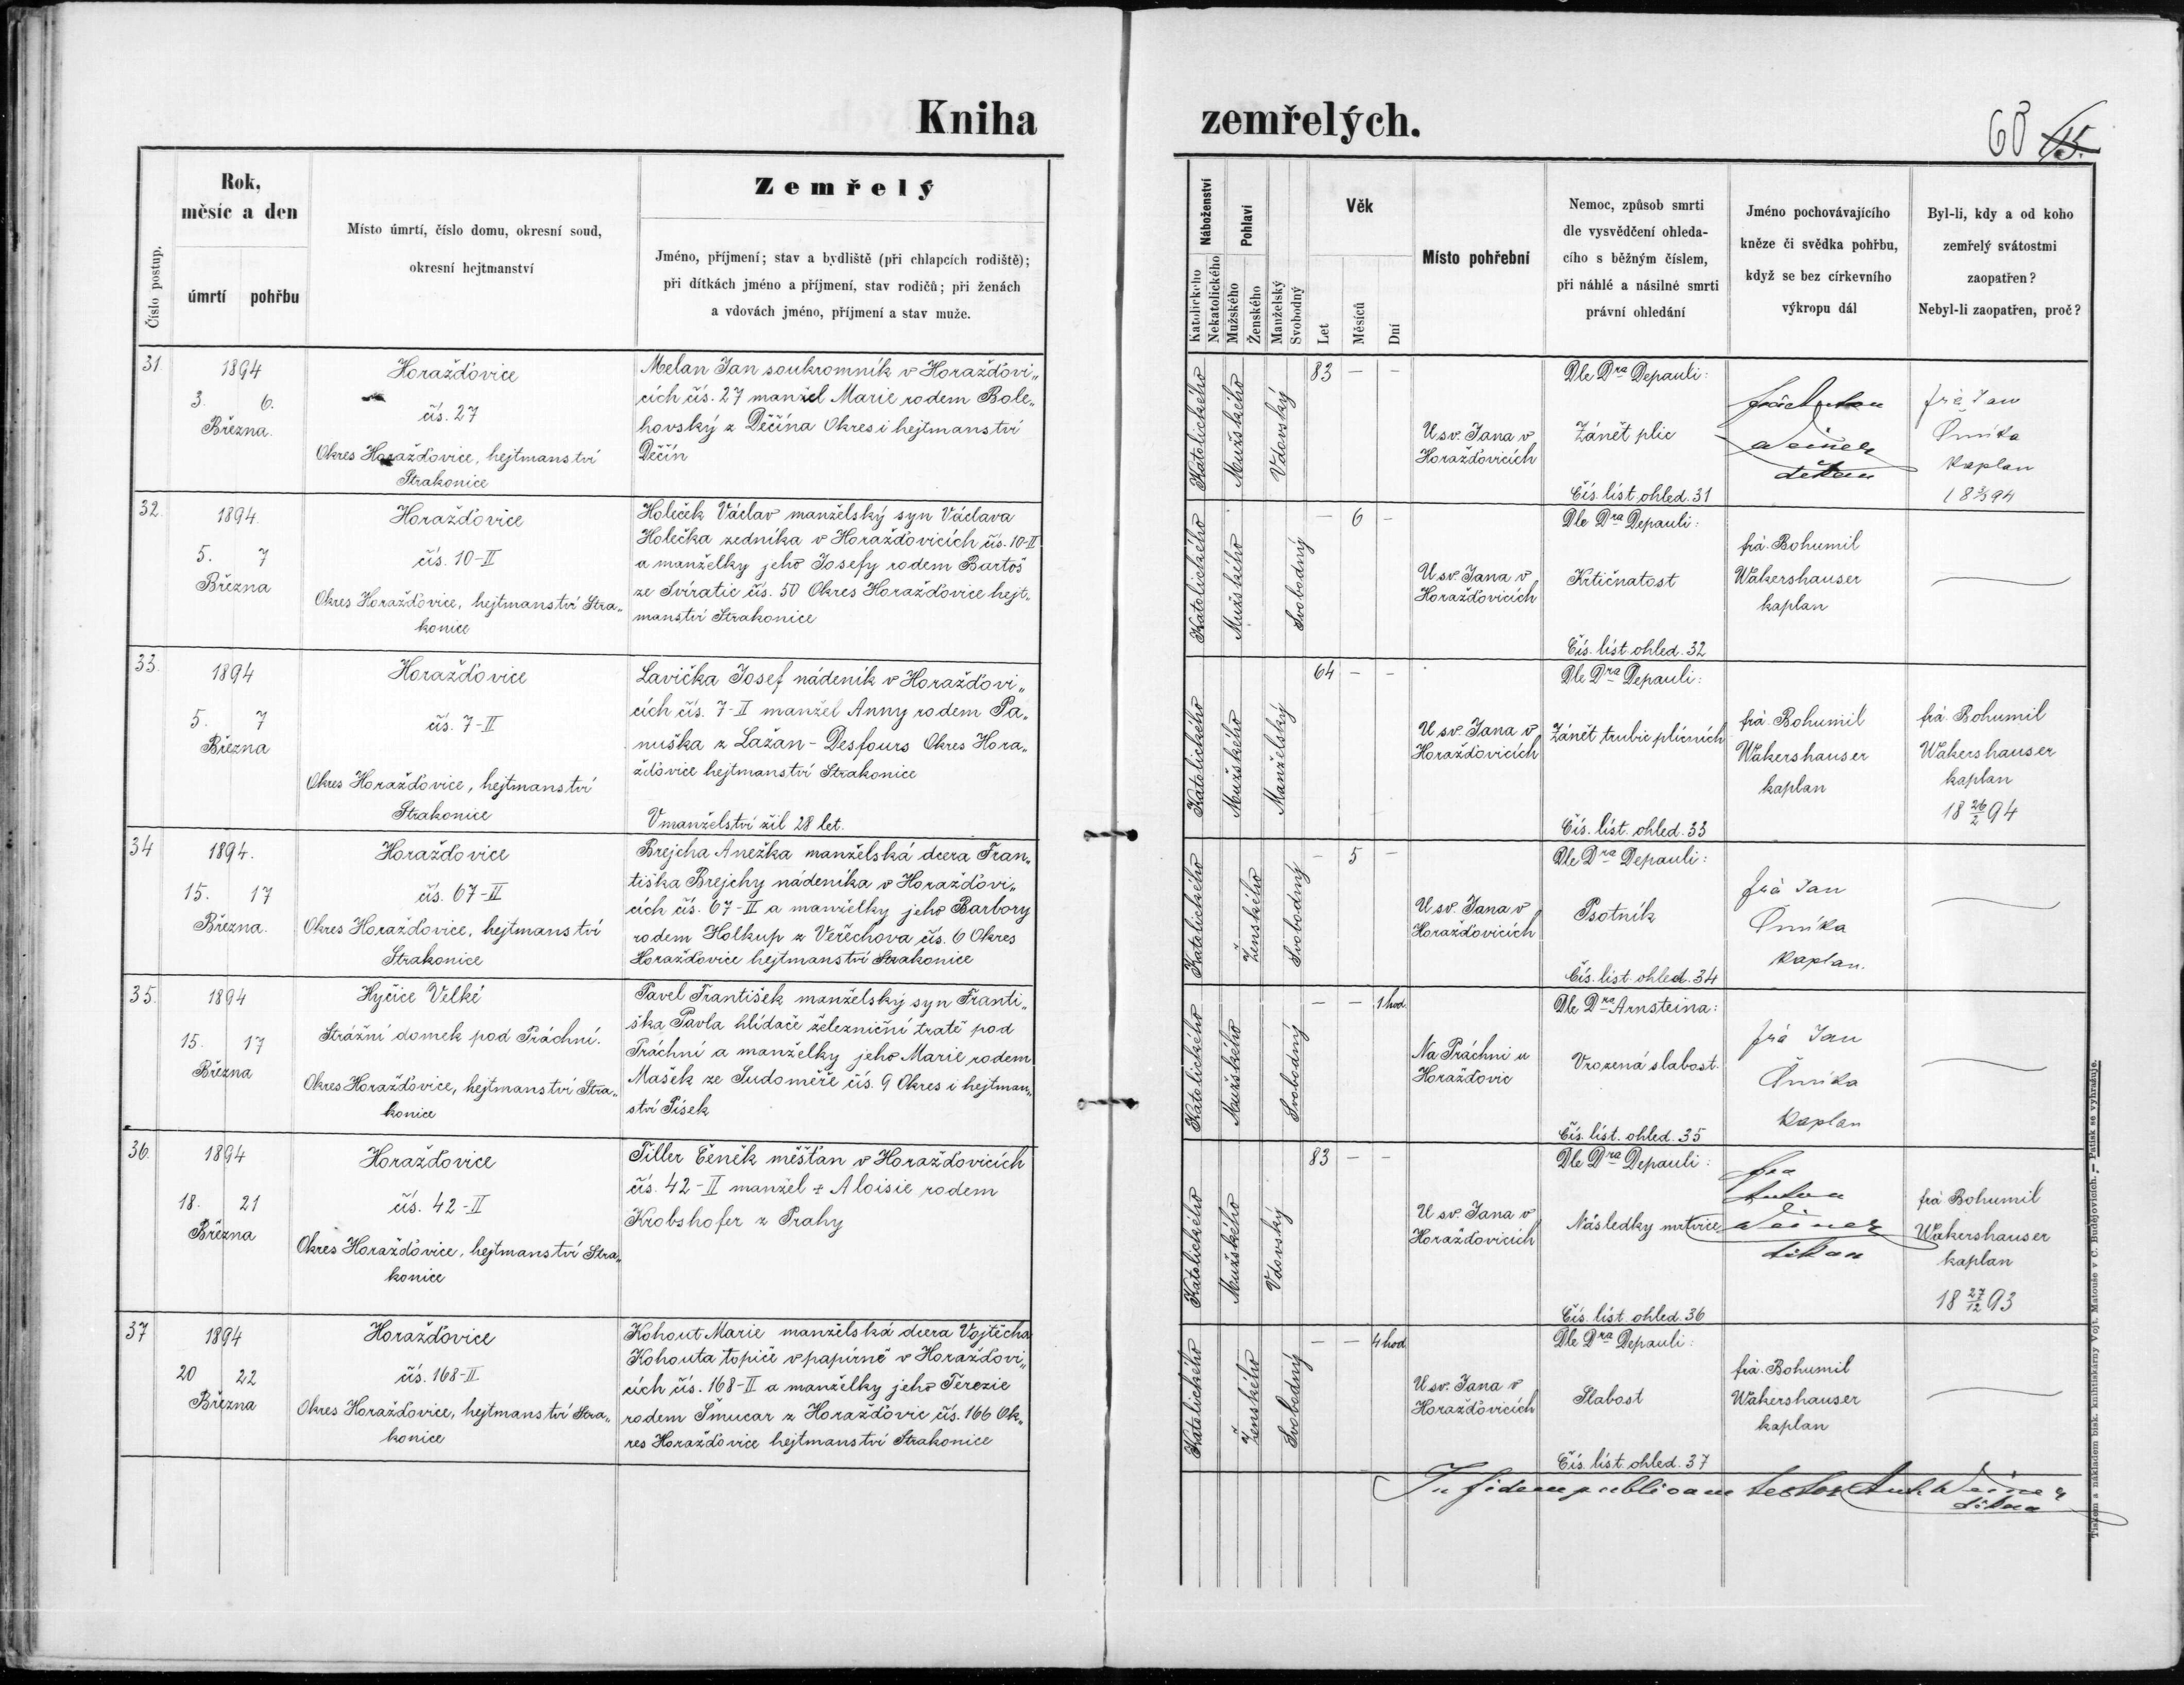 Kniha
zemřelých.
68 15.
Číslo postup.
Rok,
měsíc a den
úmrtí pohřbu
Místo úmrtí, číslo domu, okresní soud,
okresní hejtmanství
Zemřelý
Jméno, příjmení; stav a bydliště (při chlapcích rodiště);
při dítkách jméno a příjmení, stav rodičů; při ženách
a vdovách jméno, příjmení a stav muže.
Náboženství
Katolického
Nekatolického
Pohlaví
Mužského
Ženského
Manželský
Svobodný
Věk
Let
Měsíců
Dní
Místo pohřební
Nemoc, způsob smrti
dle vysvědčení ohleda-
cího s běžným číslem,
při náhlé a násilné smrti
právní ohledání
Jméno pochovávajícího
kněze či svědka pohřbu,
když se bez církevního
výkropu dál
Byl-li, kdy a od koho
zemřelý svátostmi
zaopatřen?
Nebyl-li zaopatřen, proč?
31.
1894
3. 6.
Března.
Horažďovice
čís. 27
Okres Horažďovice, hejtmanství
Strakonice
Melan Jan soukromník v Horažďovi„
cích čís. 27 manžel Marie rodem Bole„
hovský z Děčína Okres i hejtmanství
Děčín
Katolického
Mužského
Vdovský
83 — —
U sv. Jana v
Horažďovicích
Dle Dra Depauli:
Zánět plic
Čís. líst. ohled. 31
frà Anton
Weiner
děkan
frà Jan
kaplan
18 2/3 94
32.
1894.
5. 7
Března
Horažďovice
čís. 10-II
Okres Horažďovice, hejtmanství Stra„
konice
Holeček Václav manželský syn Václava
Holečka zedníka v Horažďovicích čís. 10-II
a manželky jeho Josefy rodem Bartoš
ze Svíratic čís. 50 Okres Horažďovice hejt„
manství Strakonice
Katolického
Mužského
Svobodný
— 6 —
U sv. Jana v
Horažďovicích
Dle Dra Depauli:
Krtičnatost
Čís. líst. ohled. 32
frà. Bohumil
Wakershauser
kaplan
—
33.
1894
5. 7
Března
Horažďovice
čís. 7-II
Okres Horažďovice, hejtmanství
Strakonice
Lavička Josef nádeník v Horažďovi„
cích čís. 7-II manžel Anny rodem Pa„
nuška z Lažan-Desfours Okres Hora„
žďovice hejtmanství Strakonice
V manželství žil 28 let.
Katolického
Mužského
Manželský
64 — —
U sv. Jana v
Horažďovicích
Dle Dra Depauli:
Zánět trubic plicních
Čís. líst. ohled. 33
frà. Bohumil
Wakershauser
kaplan
frà Bohumil
Wakershauser
kaplan
18 26/2 94
34
1894.
15. 17
Března.
Horažďovice
čís. 67-II
Okres Horažďovice, hejtmanství
Strakonice
Brejcha Anežka manželská dcera Fran„
tiška Brejchy nádeníka v Horažďovi„
cích čís. 67-II a manželky jeho Barbory
rodem Holkup z Veřechova čís. 6 Okres
Horažďovice hejtmanství Strakonice
Katolického
Ženského
Svobodný
— 5 —
U sv. Jana v
Horažďovicích
Dle Dra Depauli:
Psotník
Čís. líst. ohled. 34
frà Jan
kaplan.
—
35.
1894
15. 17
Března
Hyčice Velké
Strážní domek pod Práchní.
Okres Horažďovice, hejtmanství Stra„
konice
Pavel František manželský syn Franti„
ška Pavla hlídače železniční tratě pod
Práchní a manželky jeho Marie rodem
Mašek ze Sudoměře čís. 9 Okres i hejtman„
ství Písek
Katolického
Mužského
Svobodný
— — 1 hod.
Na Práchni u
Horažďovic
Dle Dra Arnsteina:
Vrozená slabost.
Čís. líst. ohled. 35
frà Jan
kaplan
—
36.
1894
18. 21
Března
Horažďovice
čís. 42-II
Okres Horažďovice, hejtmanství Stra„
konice
Tiller Čeněk měšťan v Horažďovicích
čís. 42-II manžel + Aloisie rodem
Krobshofer z Prahy
Katolického
Mužského
Vdovský
83 — —
U sv. Jana v
Horažďovicích
Dle Dra Depauli:
Následky mrtvice
Čís. líst. ohled. 36
fra
Anton
Weiner
děkan
frà Bohumil
Wakershauser
kaplan
18 27/12 93
37
1894
20 22
Března
Horažďovice
čís. 168-II
Okres Horažďovice, hejtmanství Stra„
konice
Kohout Marie manželská dcera Vojtěcha
Kohouta topiče v papírně v Horažďovi„
cích čís. 168-II a manželky jeho Terezie
rodem Šmucar z Horažďovic čís. 166 Ok„
res Horažďovice hejtmanství Strakonice
Katolického
Ženského
Svobodný
— — 4 hod
U sv. Jana v
Horažďovicích
Dle Dra Depauli:
Slabost
Čís. líst. ohled. 37
frà. Bohumil
Wakershauser
kaplan
—
In fidem publicam testor Ant. Weiner
děkan
Tiskem a nákladem bisk. knihtiskárny Vojt. Matouše v Č. Budějovicích. — Patisk se vyhražuje.